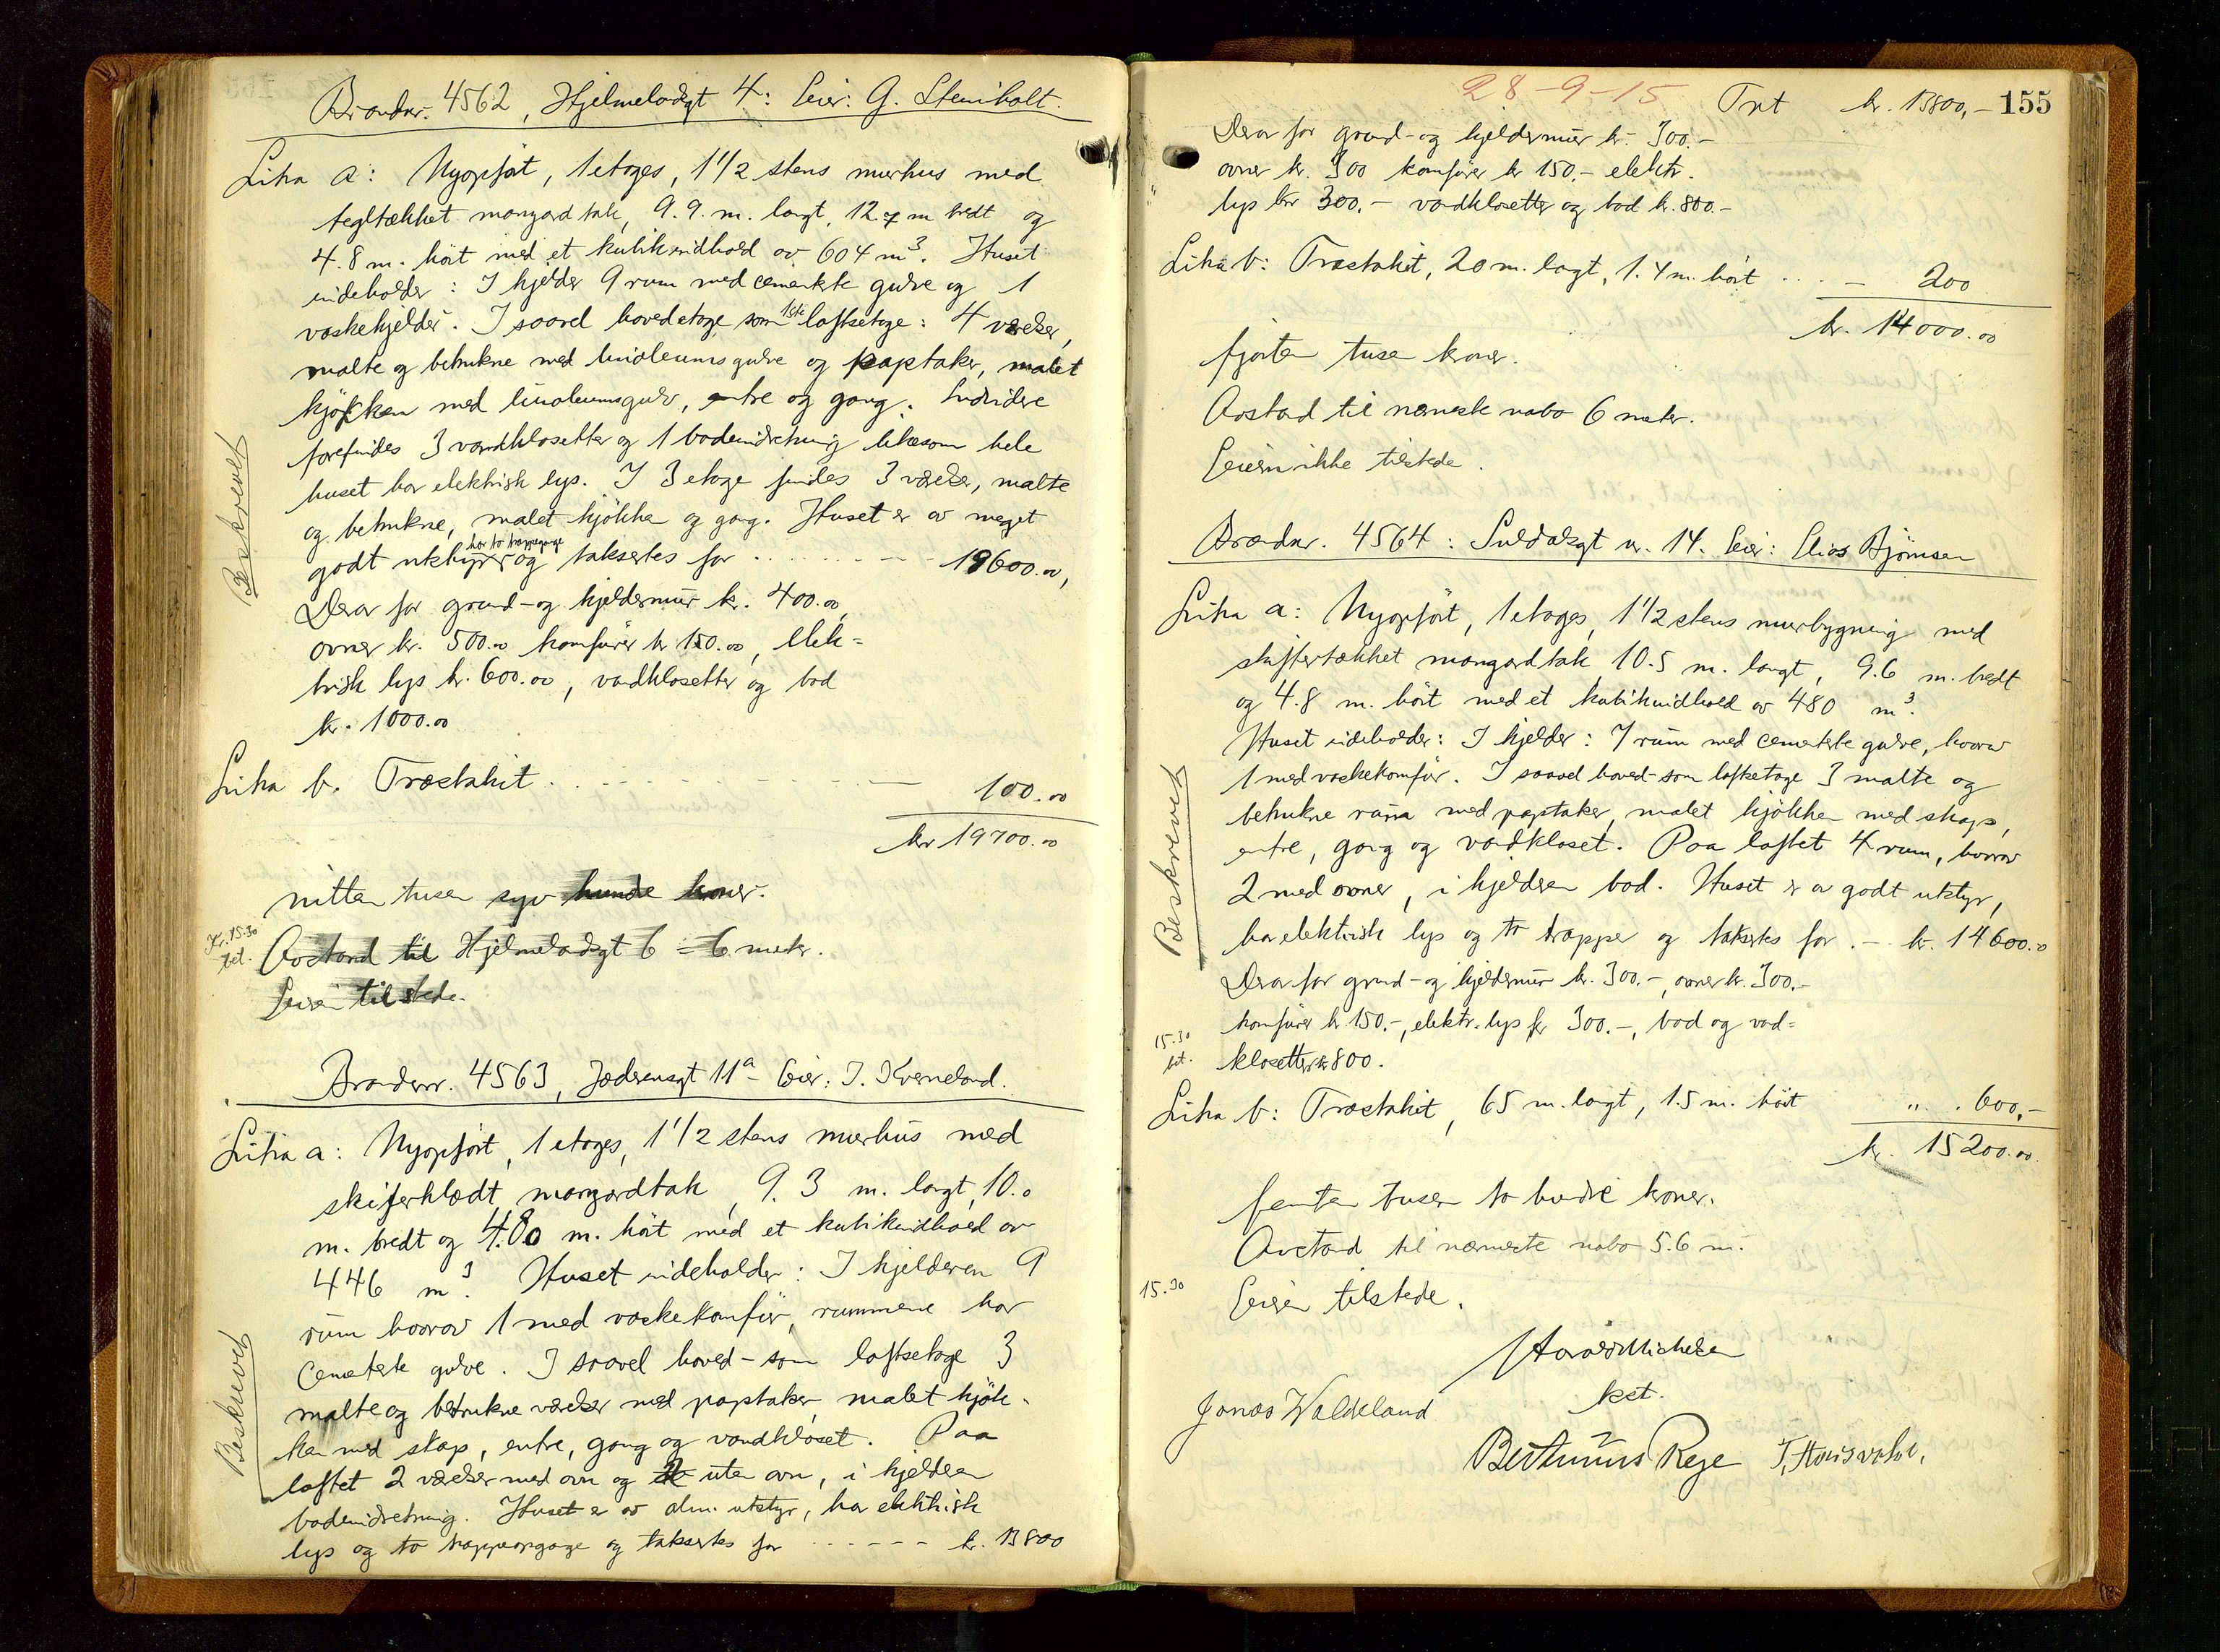 Brandnr. 4562, Hjelmelandsgt 4: Eier: G. Stenholt.
Litra a: Nyopført, 1 etages, 1 1/2 stens murhus med
tegltækket mangard tak, 9.9. m. langt, 12.7 m bredt og
4.8 m. høit med et kubikindhold av 604 m³. Huset
indeholder: I kjelder 9 rum med cementerte gulve og 1
vaskekjelder. I saavel hovedetage som 1ste loftsetage: 4 værelser,
malte og betrukne med linoleumsgulve og paptaker, malet
kjøkken med linoleumsgulv, entre og gang. Endvidere
forefindes 3 vandklosetter og 1 badeindretning likesom hele
huset har elektrisk lys. I 3 etage findes 3 værelser, malte
og betrukne, malet kjøkken og gang. Huset er av meget
godt utstyr, har to trappegange og taksertes for 19600.00,
Derav for grund- og kjeldermur kr. 400.00,
ovner kr. 500.00 komfurer kr 150.00, Elek=
trisk lys kr. 600.00, vandklosetter og bad
kr. 1000.00
Litra b. Træstakit 100.00
kr 19700.00
nitten tusen syv hundre kroner.
Kr. 15.30
bet.
Avstand til Hjelmelandsgt 6 = 6 meter.
Eieren tilstede.
Beskrevet
Brandnr. 4563, Jæderensgt 11a - Eier: I. Kverneland.
Litra a: Nyopført, 1 etages, 1 1/2 stens murhus med
skiferklædt mangardtak, 9.3 m. langt, 10.0
m. bredt og 4.80 m. høit med et kubikindhold av
446 m³. Huset indeholder: I kjelderen 9
rum hvorav 1 med vaskekomfur, rummene har
cementerte gulve. I saavel hoved- som loftsetage 3
malte og betrukne værelser med paptaker, malet kjøk-
ken med skap, entre, gang og vandkloset. Paa
loftet 2 værelser med ovn og 2 uten ovn, i kjelderen
badeindretning. Huset er av alm. utstyr, har elektrisk
lys og to trappeopgange og taksertes for kr. 13800
Beskrevet
28-9-15 Trt kr. 13800,- 155
Derav for grund- og kjeldermur kr. 300.-
ovner kr. 300 komfurer kr 150.- elektr.
lys kr 300.- vandklosetter og bad kr. 800.-
Litra b: Træstakit, 20 m. langt, 1.4 m. høit - 200
kr. 14000.00
fjorten tusen kroner.
Avstand til nærmeste nabo 6 meter.
Eieren ikke tilstede.
Brandnr. 4564: Suldalsgt nr. 14. Eier: Elias Bjørnsen
Litra a: Nyopført, 1 etages, 1 1/2 stens murbygning med
skiffertækket mangardtak 10.5 m. langt, 9.6 m. bredt
og 4.8 m. høit med et kubikindhold av 480 m³.
Huset indeholder: I kjelder: 7 rum med cementerte gulve, hvorav
1 med vaskekomfur. I saavel hoved- som loftsetage 3 malte og
betrukne rum med paptaker, malet kjøkken med skap,
entre, gang og vandkloset. Paa loftet 4 rum, hvorav
2 med ovner, i kjelderen bad. Huset er av godt utstyr,
har elektrisk lys og to trapper og taksertes for - kr. 14600.00
Derav for grund- og kjeldermur kr. 300.-, ovner kr. 300.-
komfurer kr 150.-, elektr. lys kr 300.-, bad og vand=
klosetter kr 800.
15.30
bet.
Beskrevet
Litra b: Træstakit, 65 m. langt, 1.5 m. høit " 600,-
kr. 15200.00
femten tusen to hundre kroner.
Avstand til nærmeste nabo 5.6 m.
15.30
Eieren tilstede.
Harald Michelsen
kst.
Jonas Waldeland
Berthinius Rege